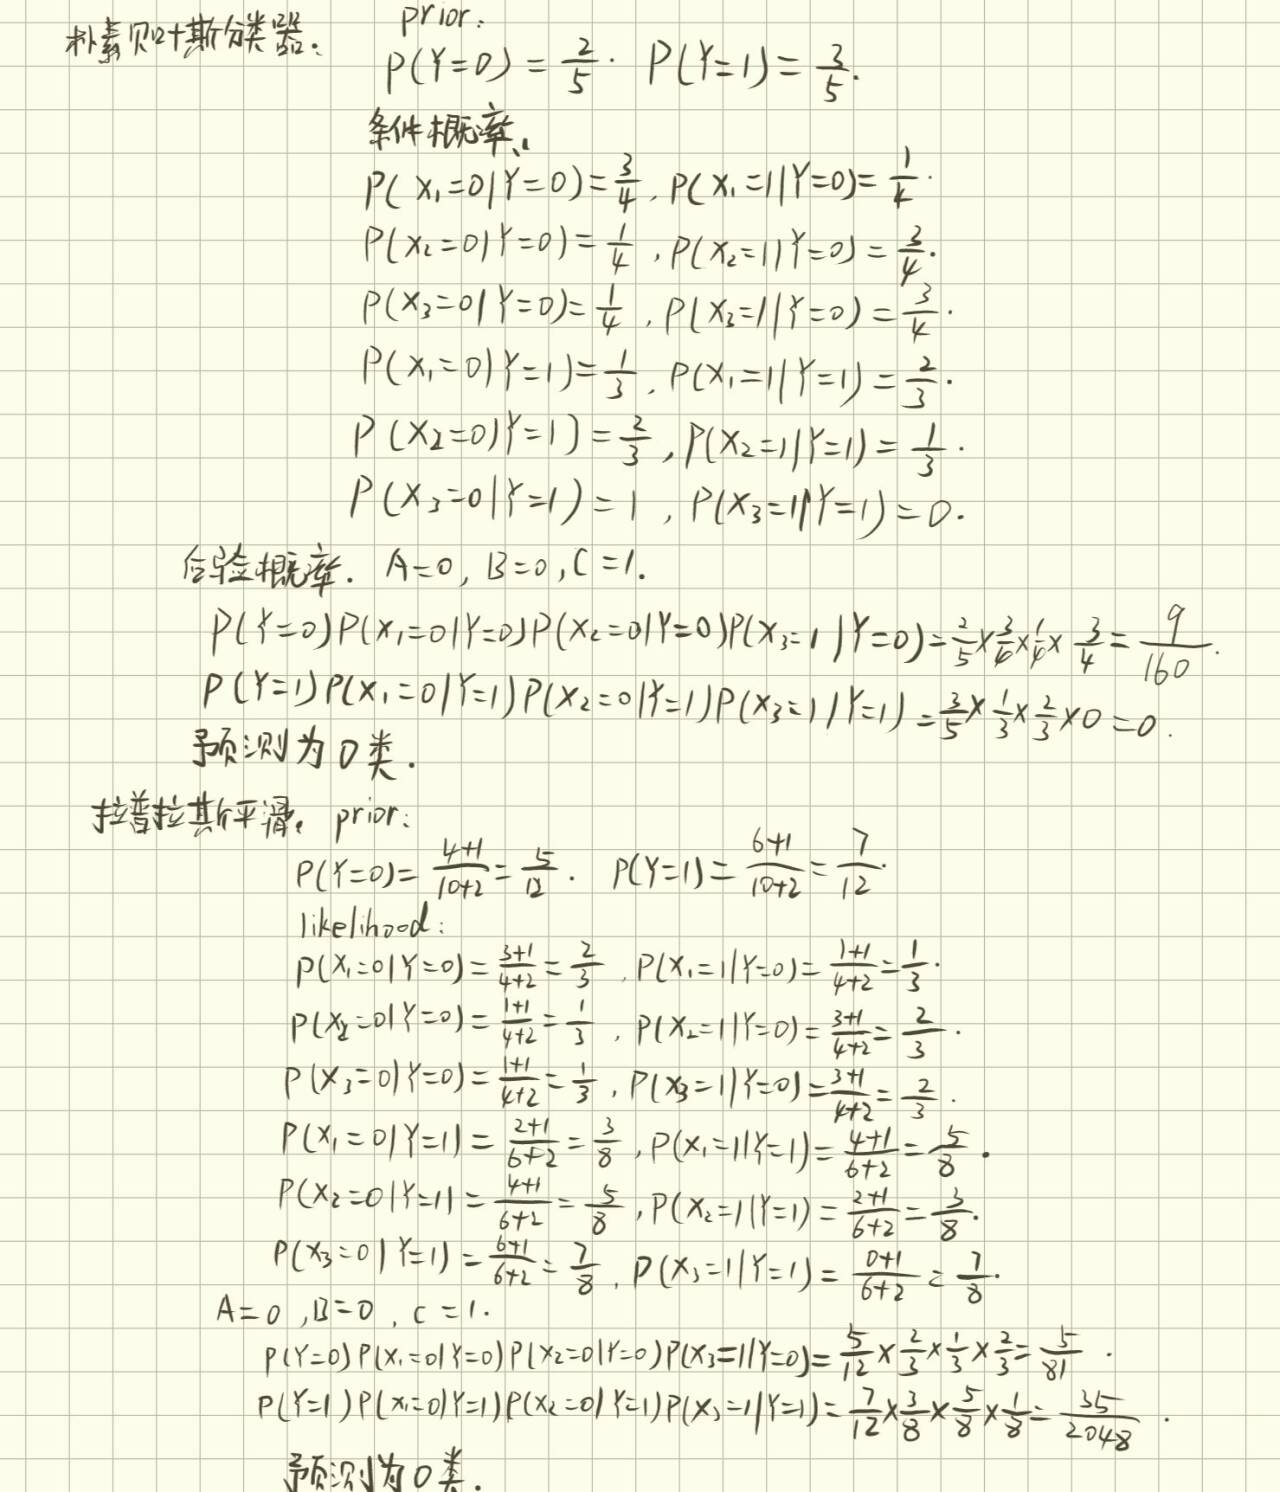 朴素贝叶斯分类器. prior:
P(Y=0) = 2/5. P(Y=1) = 3/5.
条件概率.
P(X₁=0|Y=0)=3/4, P(X₁=1|Y=0)=1/4.
P(X₂=0|Y=0)=1/4, P(X₂=1|Y=0)=3/4.
P(X₃=0|Y=0)=1/4, P(X₃=1|Y=0)=3/4.
P(X₁=0|Y=1)=1/3, P(X₁=1|Y=1)=2/3.
P(X₂=0|Y=1)=2/3, P(X₂=1|Y=1)=1/3.
P(X₃=0|Y=1)=1, P(X₃=1|Y=1)=0.
后验概率. A=0, B=0, C=1.
P(Y=0)P(X₁=0|Y=0)P(X₂=0|Y=0)P(X₃=1|Y=0)=2/5×3/4×1/4×3/4=9/160.
P(Y=1)P(X₁=0|Y=1)P(X₂=0|Y=1)P(X₃=1|Y=1)=3/5×1/3×2/3×0=0.
预测为0类.
拉普拉斯平滑. prior:
P(Y=0)=4+1/10+2=5/12. P(Y=1)=6+1/10+2=7/12.
likelihood:
P(X₁=0|Y=0)=3+1/4+2=2/3, P(X₁=1|Y=0)=1+1/4+2=1/3.
P(X₂=0|Y=0)=1+1/4+2=1/3, P(X₂=1|Y=0)=3+1/4+2=2/3.
P(X₃=0|Y=0)=1+1/4+2=1/3, P(X₃=1|Y=0)=3+1/4+2=2/3.
P(X₁=0|Y=1)=2+1/6+2=3/8, P(X₁=1|Y=1)=4+1/6+2=5/8.
P(X₂=0|Y=1)=4+1/6+2=5/8, P(X₂=1|Y=1)=2+1/6+2=3/8.
P(X₃=0|Y=1)=6+1/6+2=7/8, P(X₃=1|Y=1)=0+1/6+2=7/8.
A=0, B=0, C=1.
P(Y=0)P(X₁=0|Y=0)P(X₂=0|Y=0)P(X₃=1|Y=0)=5/12×2/3×1/3×2/3=5/81.
P(Y=1)P(X₁=0|Y=1)P(X₂=0|Y=1)P(X₃=1|Y=1)=7/12×3/8×5/8×1/8=35/2048.
预测为0类.